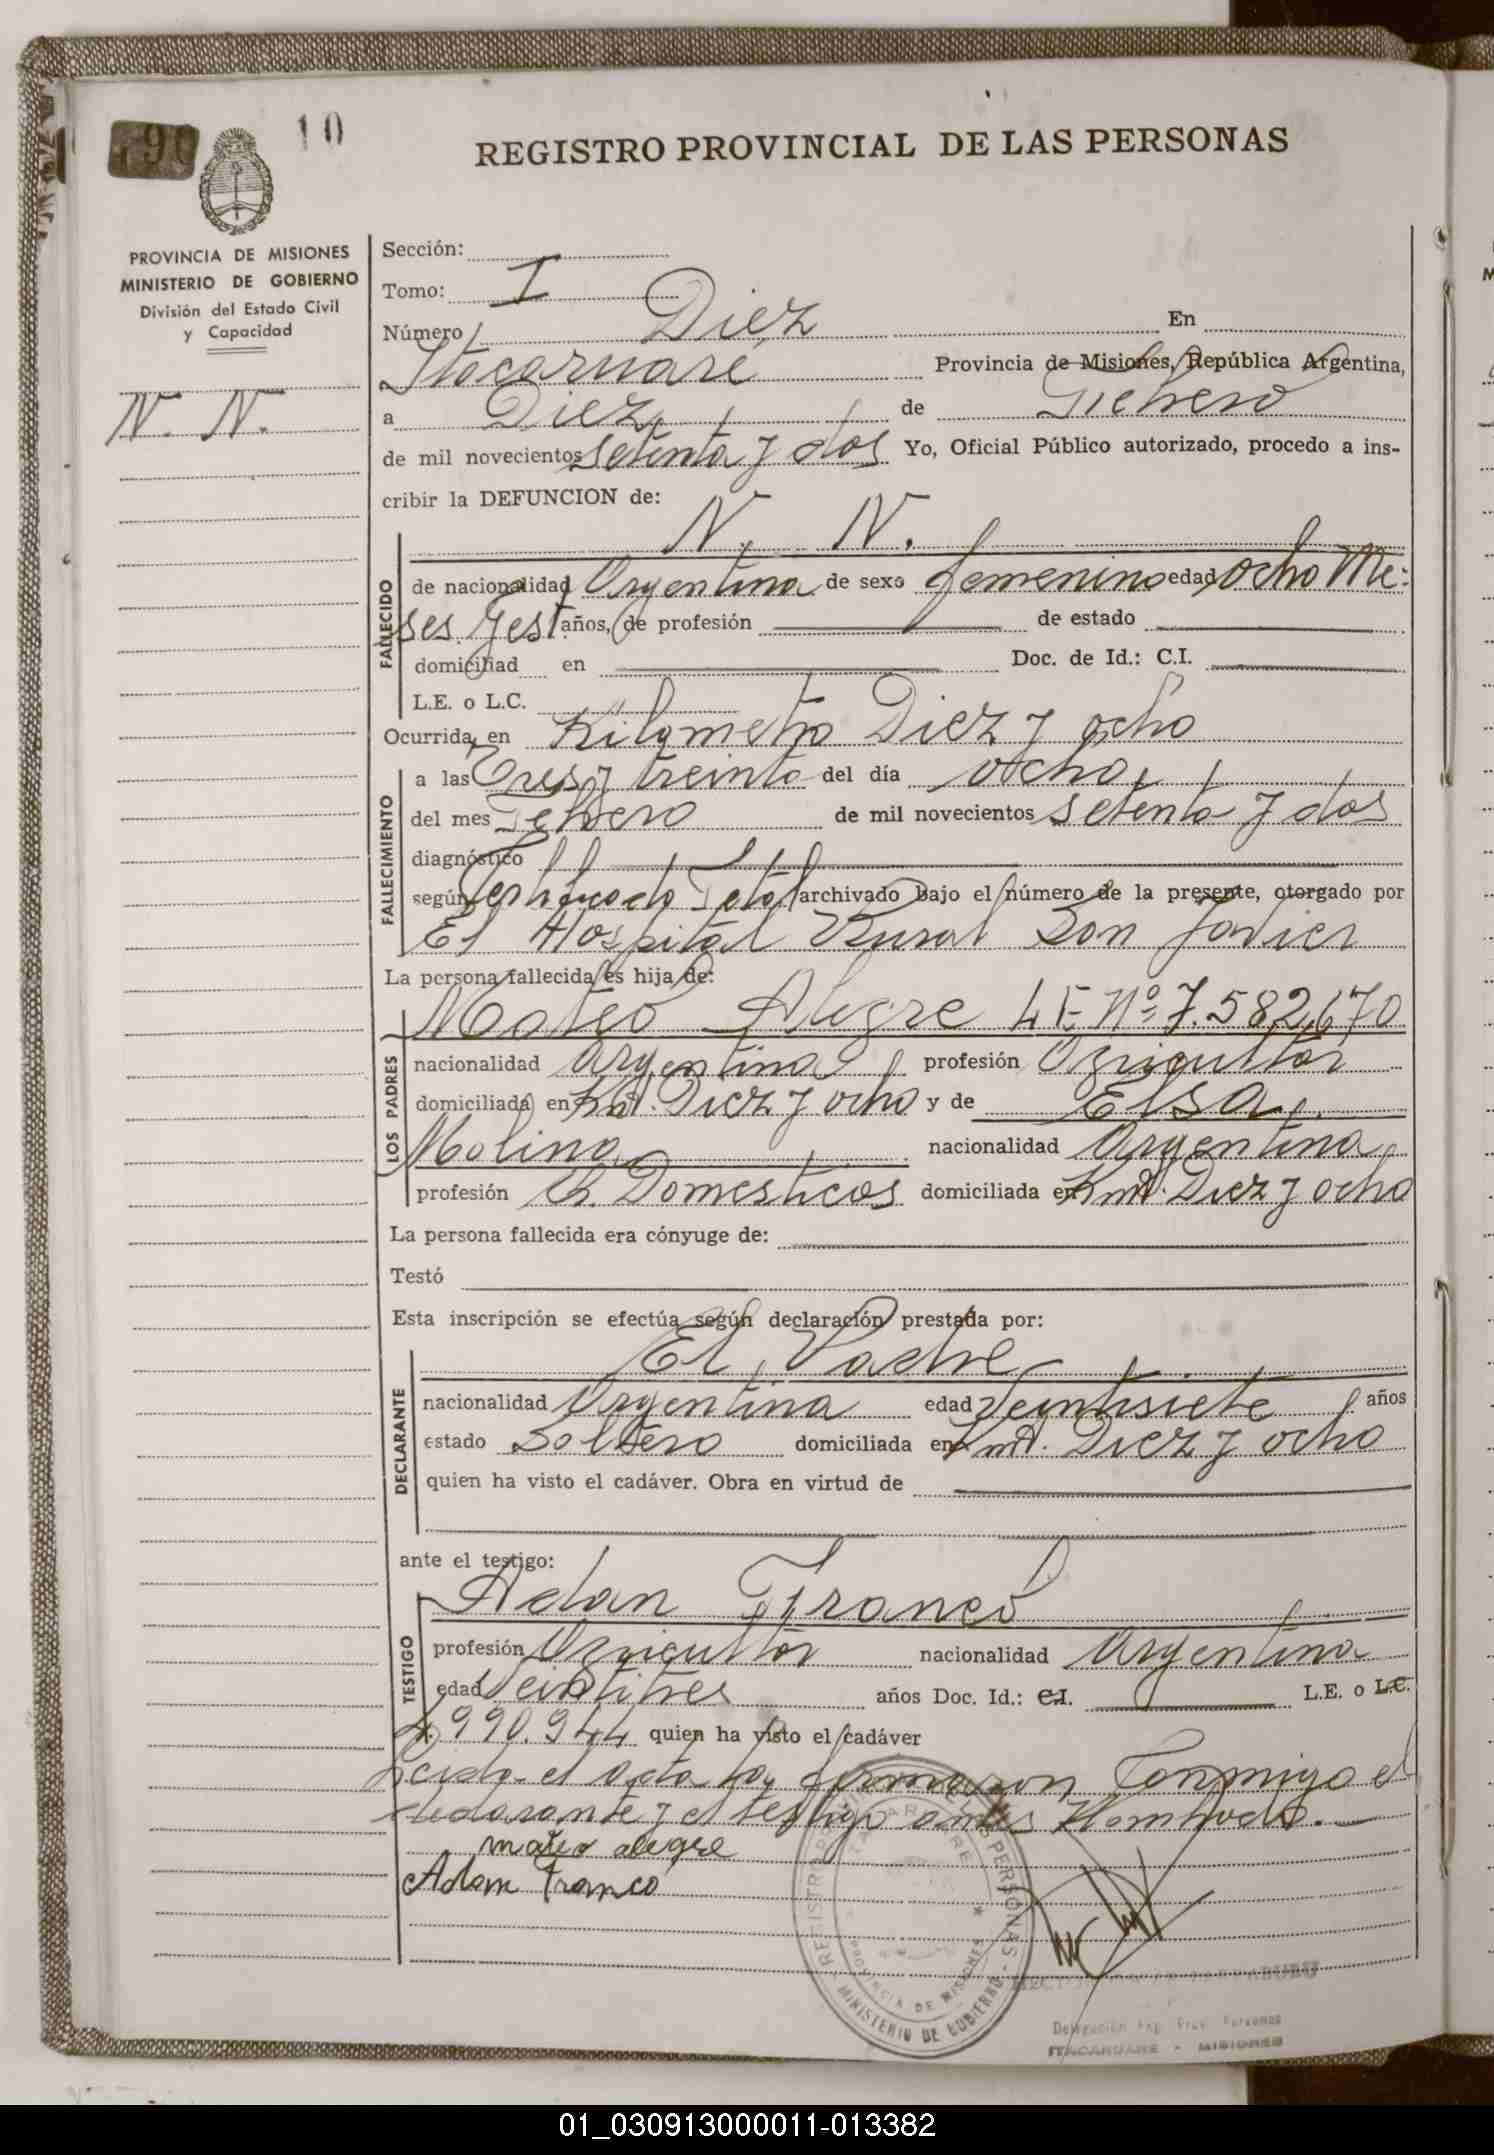 190 10
REGISTRO PROVINCIAL DE LAS PERSONAS
PROVINCIA DE MISIONES
MINISTERIO DE GOBIERNO
División del Estado Civil
y Capacidad
N. N.
Sección:
Tomo: I
Número Diez En
Itacaruaré Provincia de Misiones, República Argentina,
a Diez de Febrero
de mil novecientos setenta y dos Yo, Oficial Público autorizado, procedo a ins-
cribir la DEFUNCION de:
N. N.
FALLECIDO
de nacionalidad Argentina de sexo femenino edad ocho Me-
ses Gest años, de profesión de estado
domiciliad en Doc. de Id.: C.I.
L.E. o L.C.
Ocurrida en Kilometro Diez y ocho
FALLECIMIENTO
a las Tres y treinta del día ocho
del mes Febrero de mil novecientos setenta y dos
diagnóstico
según Certificado Fetal archivado bajo el número de la presente, otorgado por
El Hospital Rural San Javier
La persona fallecida es hija de:
LOS PADRES
Mateo Alegre L E Nº 7.582.670
nacionalidad Argentina profesión Agricultor
domiciliada en Km. Diez y ocho y de Elsa
Molina nacionalidad Argentina
profesión Q. Domesticos domiciliada en Km. Diez y ocho
La persona fallecida era cónyuge de:
Testó
Esta inscripción se efectúa según declaración prestada por:
DECLARANTE
El Padre
nacionalidad Argentina edad Veintisiete años
estado Soltero domiciliada en Km. Diez y ocho
quien ha visto el cadáver. Obra en virtud de
ante el testigo:
TESTIGO
Adan Franco
profesión Agricultor nacionalidad Argentina
edad Veintitres años Doc. Id.: C.I. L.E. o L.C.
990.944 quien ha visto el cadáver
Leida el acta la firmaron Conmigo el
declarante y el testigo antes Nombrado.
mateo alegre
Adam Franco
REGISTRO PROVINCIAL DE LAS PERSONAS
PROVINCIA DE MISIONES
MINISTERIO DE GOBIERNO
Delegación Reg. Prov. Personas
ITACARUARE - MISIONES
01_030913000011-013382